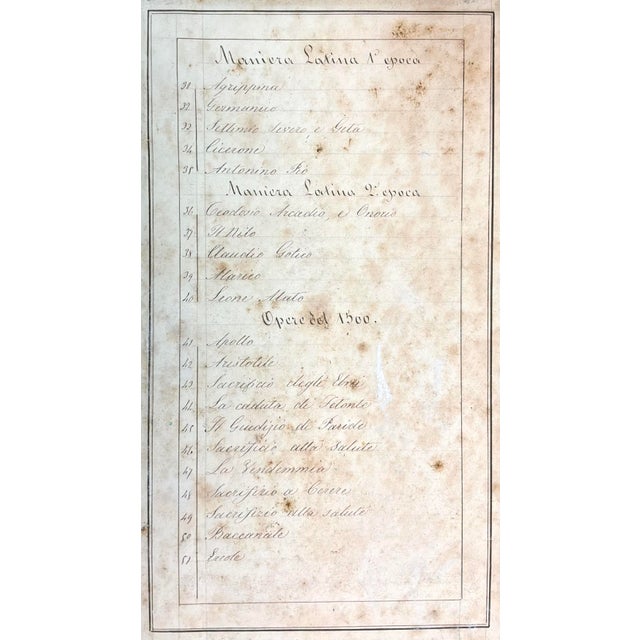 Maniera Latina 1ª epoca
31 Agrippina
32 Germanico
33 Settimio Severo, e Geta
34 Cicerone
35 Antonino Pio
Maniera Latina 2ª epoca
36 Teodosio Arcadio, e Onorio
37 Il Nilo
38 Claudio Gotico
39
40 Leone Alato
Opere del 1500.
41 Apollo
42 Aristotile
43 Sacrificio degli Ebrei
44 La caduta di Fetonte
45 Il Giudizio di Paride
46 Sacrificio alla Salute
47 La Vendemmia
48 Sacrifizio a Cerere
49 Sacrifizio alla salute
50 Baccanale
51 Ercole